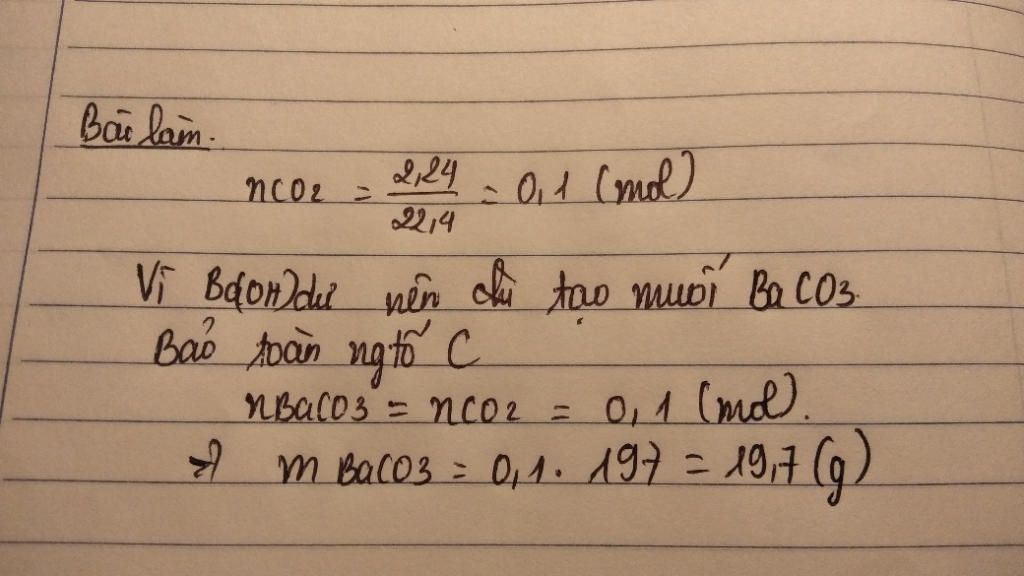 Bài làm.
nCO2 = 2,24/22,4 = 0,1 (mol)
Vì Ba(OH)dư nên chỉ tạo muối BaCO3.
Bảo toàn ngtố C
nBaCO3 = nCO2 = 0,1 (mol).
→ mBaCO3 = 0,1 . 197 = 19,7 (g)